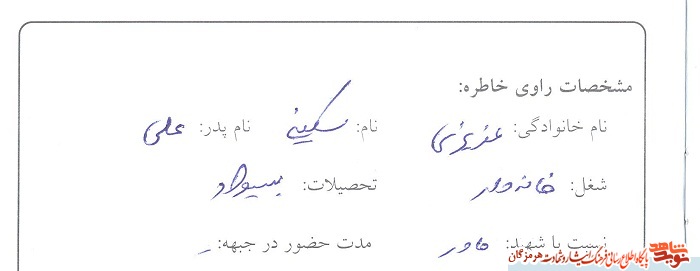 مشخصات راوی خاطره:
نام خانوادگی: عزیزی نام: سکینه نام پدر: علی
شغل: خانه دار تحصیلات: بیسواد
نسبت با شهید: مادر مدت حضور در جبهه: ـ
نوید شاهد پایگاه اطلاع رسانی فرهنگ ایثار و شهادت هرمزگان